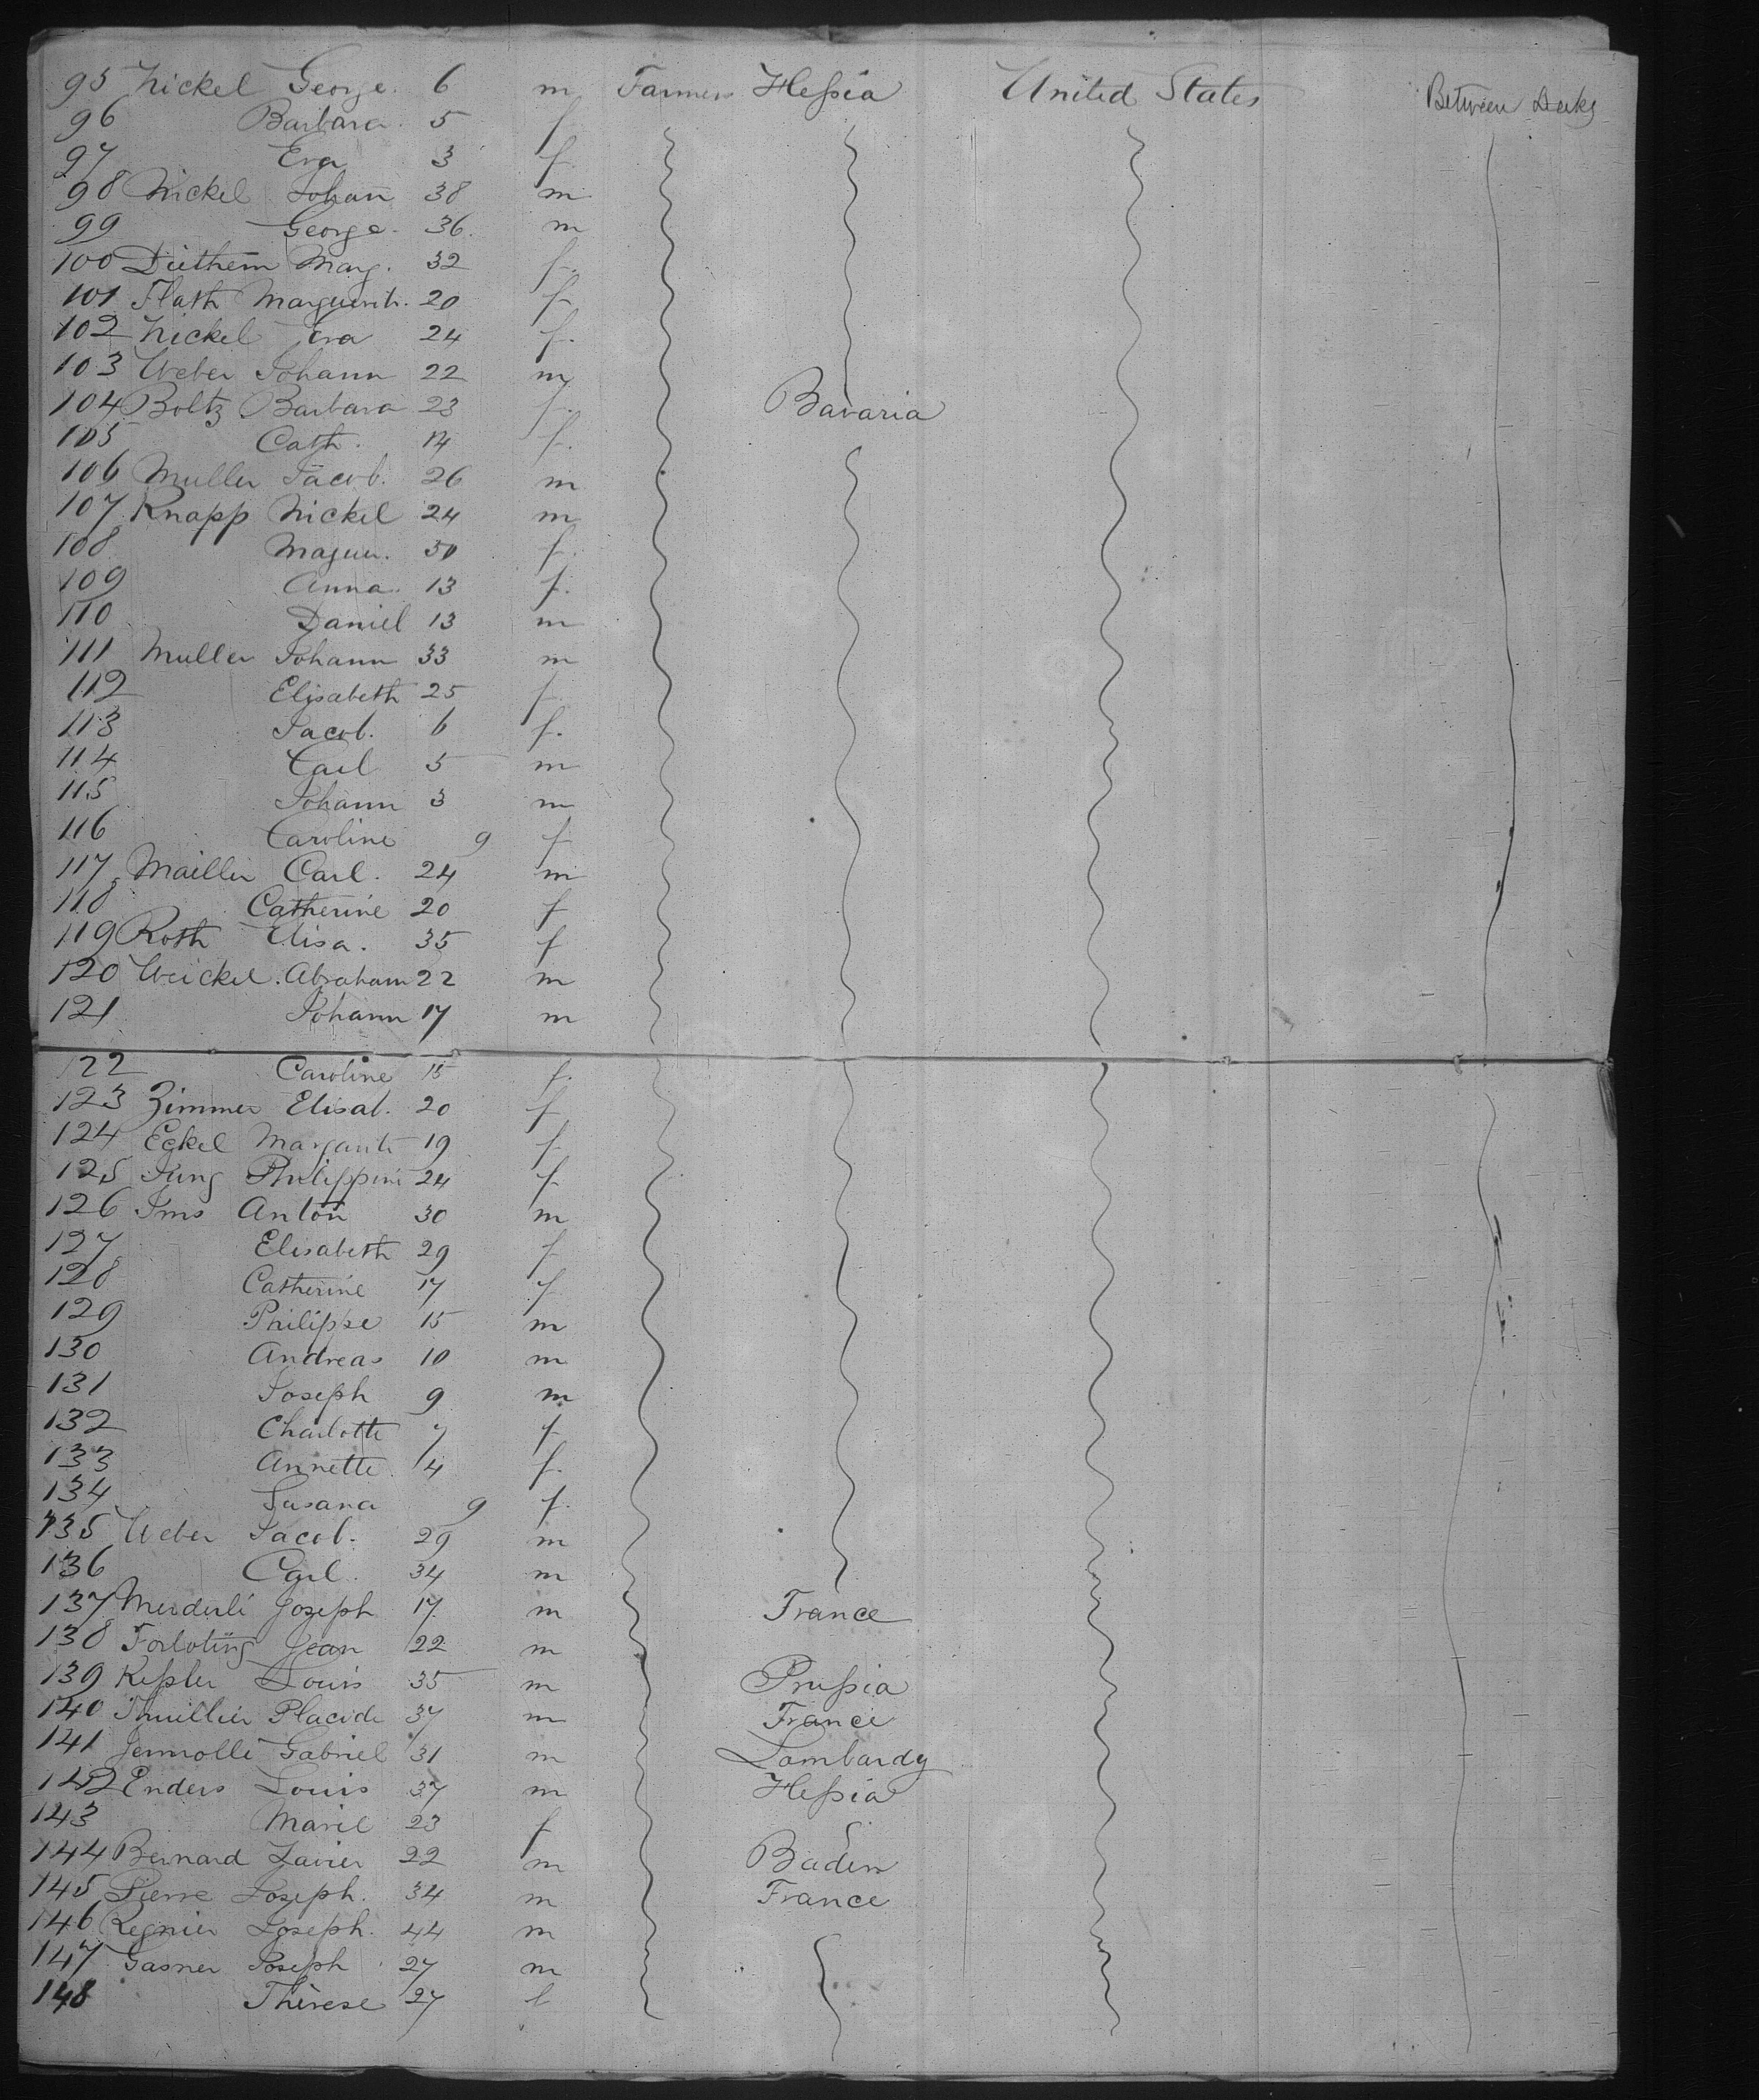 95 Nickel George. 6 m Farmers Hessia United States Between Decks
96 Barbara. 5 f
97 Eva 3 f.
98 Nickel Johan 38 m
99 George. 36. m
100 Diethem Marg. 32 f.
101 Flath Marguerit. 20 f
102 Nickel Eva 24 f.
103 Weber Johann 22 m
104 Boltz Barbara 23 f. Bavaria
105 Cath. 14 f.
106 Muller Jacob. 26 m
107 Knapp Nickel 24 m
108 f.
109 Anna. 13 f.
110 Daniel 13 m
111 Muller Johann 33 m
112 Elisabeth 25 f.
113 Jacob. 6 f.
114 Carl 5 m
115 Johann 3 m
116 Caroline 9 f
117 Mailler Carl. 24 m
118 Catherine 20 f
119 Roth Elisa. 35 f
120 Weickel. Abraham 22 m
121 Johann 17 m
122 Caroline 15 f.
123 Zimmer Elisab. 20 f
124 Eckel Margarite 19 f
125 Jung Philippine 24 f
126 Ims Anton 30 m
127 Elisabeth 29 f
128 Catherine 17 f
129 Philippe 15 m
130 Andreas 10 m
131 Joseph 9 m
132 Charlotte 7 f
133 Annette. 4 f.
134 Susana 9 f.
135 Weber Jacob. 29 m
136 Carl. 34 m
137 Joseph 17 m France
138 Jean 22 m
139 Kessler Louis 35 m Prussia
140 Thuillier Placide 37 m France
141 Gabriel 31 m Lombardy
142 Enders Louis 37 m Hessia
143 Marie 23 f
144 Bernard Xavier 22 m Baden
145 Pierre Joseph. 34 m France
146 Regnier Joseph. 44 m
147 Gasner Joseph 27 m
148 Thérese 27 f